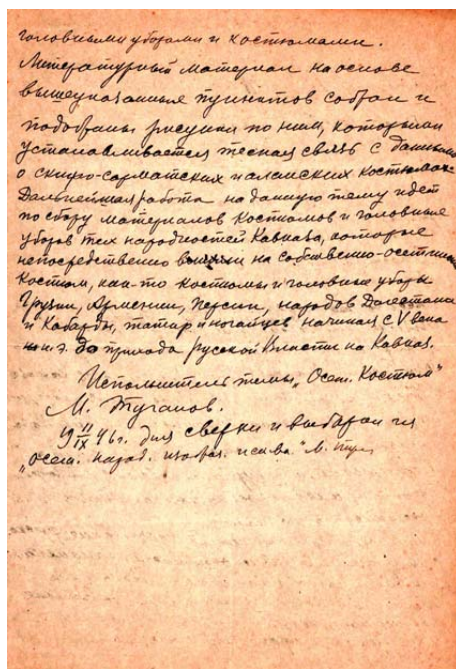 головными уборами и костюмами.
Литературный материал на основе
вышеуказанные пунктов собран и
подобраны рисунки по ним, которыми
устанавливается тесная связь с данными
о скифо-сарматских и аланских костюмах.
Дальнейшая работа на данную тему идет
по сбору материалов костюмов и головные
уборов тех народностей Кавказа, которые
непосредственно на собственно-осетинск
костюм, как-то костюмы и головные уборы
Грузии, Армении, Персии, народов Дагестана
и Кабарды, татар и ногайцев начиная с V века
н.э. до прихода русской власти на Кавказ.
Исполнитель темы "Осет. Костюм"
М. Туганов.
19 11/IX 46 г. для сверки и выборки из
"Осет. народ. изобраз. искусва" М. Туг